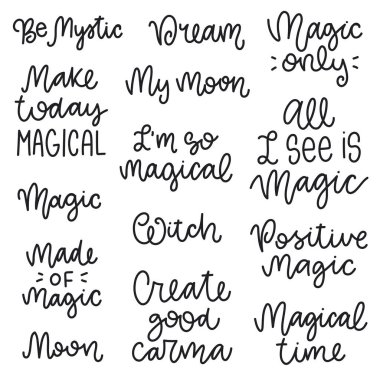 Be Mystic
Make
today
MAGICAL
Magic
Made
OF
magic
Moon
Dream
My Moon
I'm so
magical
Witch
Create
good
carma
Magic
only
all
I see is
Magic
Positive
Magic
Magical
time